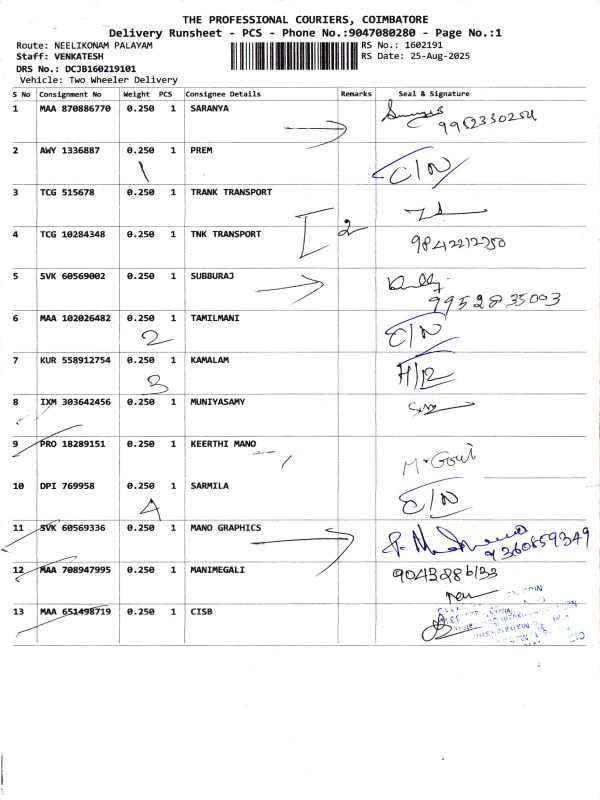 THE PROFESSIONAL COURIERS, COIMBATORE
Delivery Runsheet - PCS - Phone No.:9047080280 - Page No.:1
Route: NEELIKONAM PALAYAM RS No.: 1602191
Staff: VENKATESH RS Date: 25-Aug-2025
DRS No.: DCJB160219101
Vehicle: Two Wheeler Delivery
S No Consignment No Weight PCS Consignee Details Remarks Seal & Signature
1 MAA 870886770 0.250 1 SARANYA
2 AWY 1336887 0.250 1 PREM C/N
1
3 TCG 515678 0.250 1 TRANK TRANSPORT
4 TCG 10284348 0.250 1 TNK TRANSPORT 2 9842212750
5 SVK 60569002 0.250 1 SUBBURAJ
9952835003
6 MAA 102026482 0.250 1 TAMILMANI C/N
2
7 KUR 558912754 0.250 1 KAMALAM H/R
3
8 IXM 303642456 0.250 1 MUNIYASAMY
9 PRO 18289151 0.250 1 KEERTHI MANO
M. Gowri
10 DPI 769958 0.250 1 SARMILA C/N
4
11 SVK 60569336 0.250 1 MANO GRAPHICS
9360859349
12 MAA 708947995 0.250 1 MANIMEGALI 9043286133
13 MAA 651498719 0.250 1 CISB